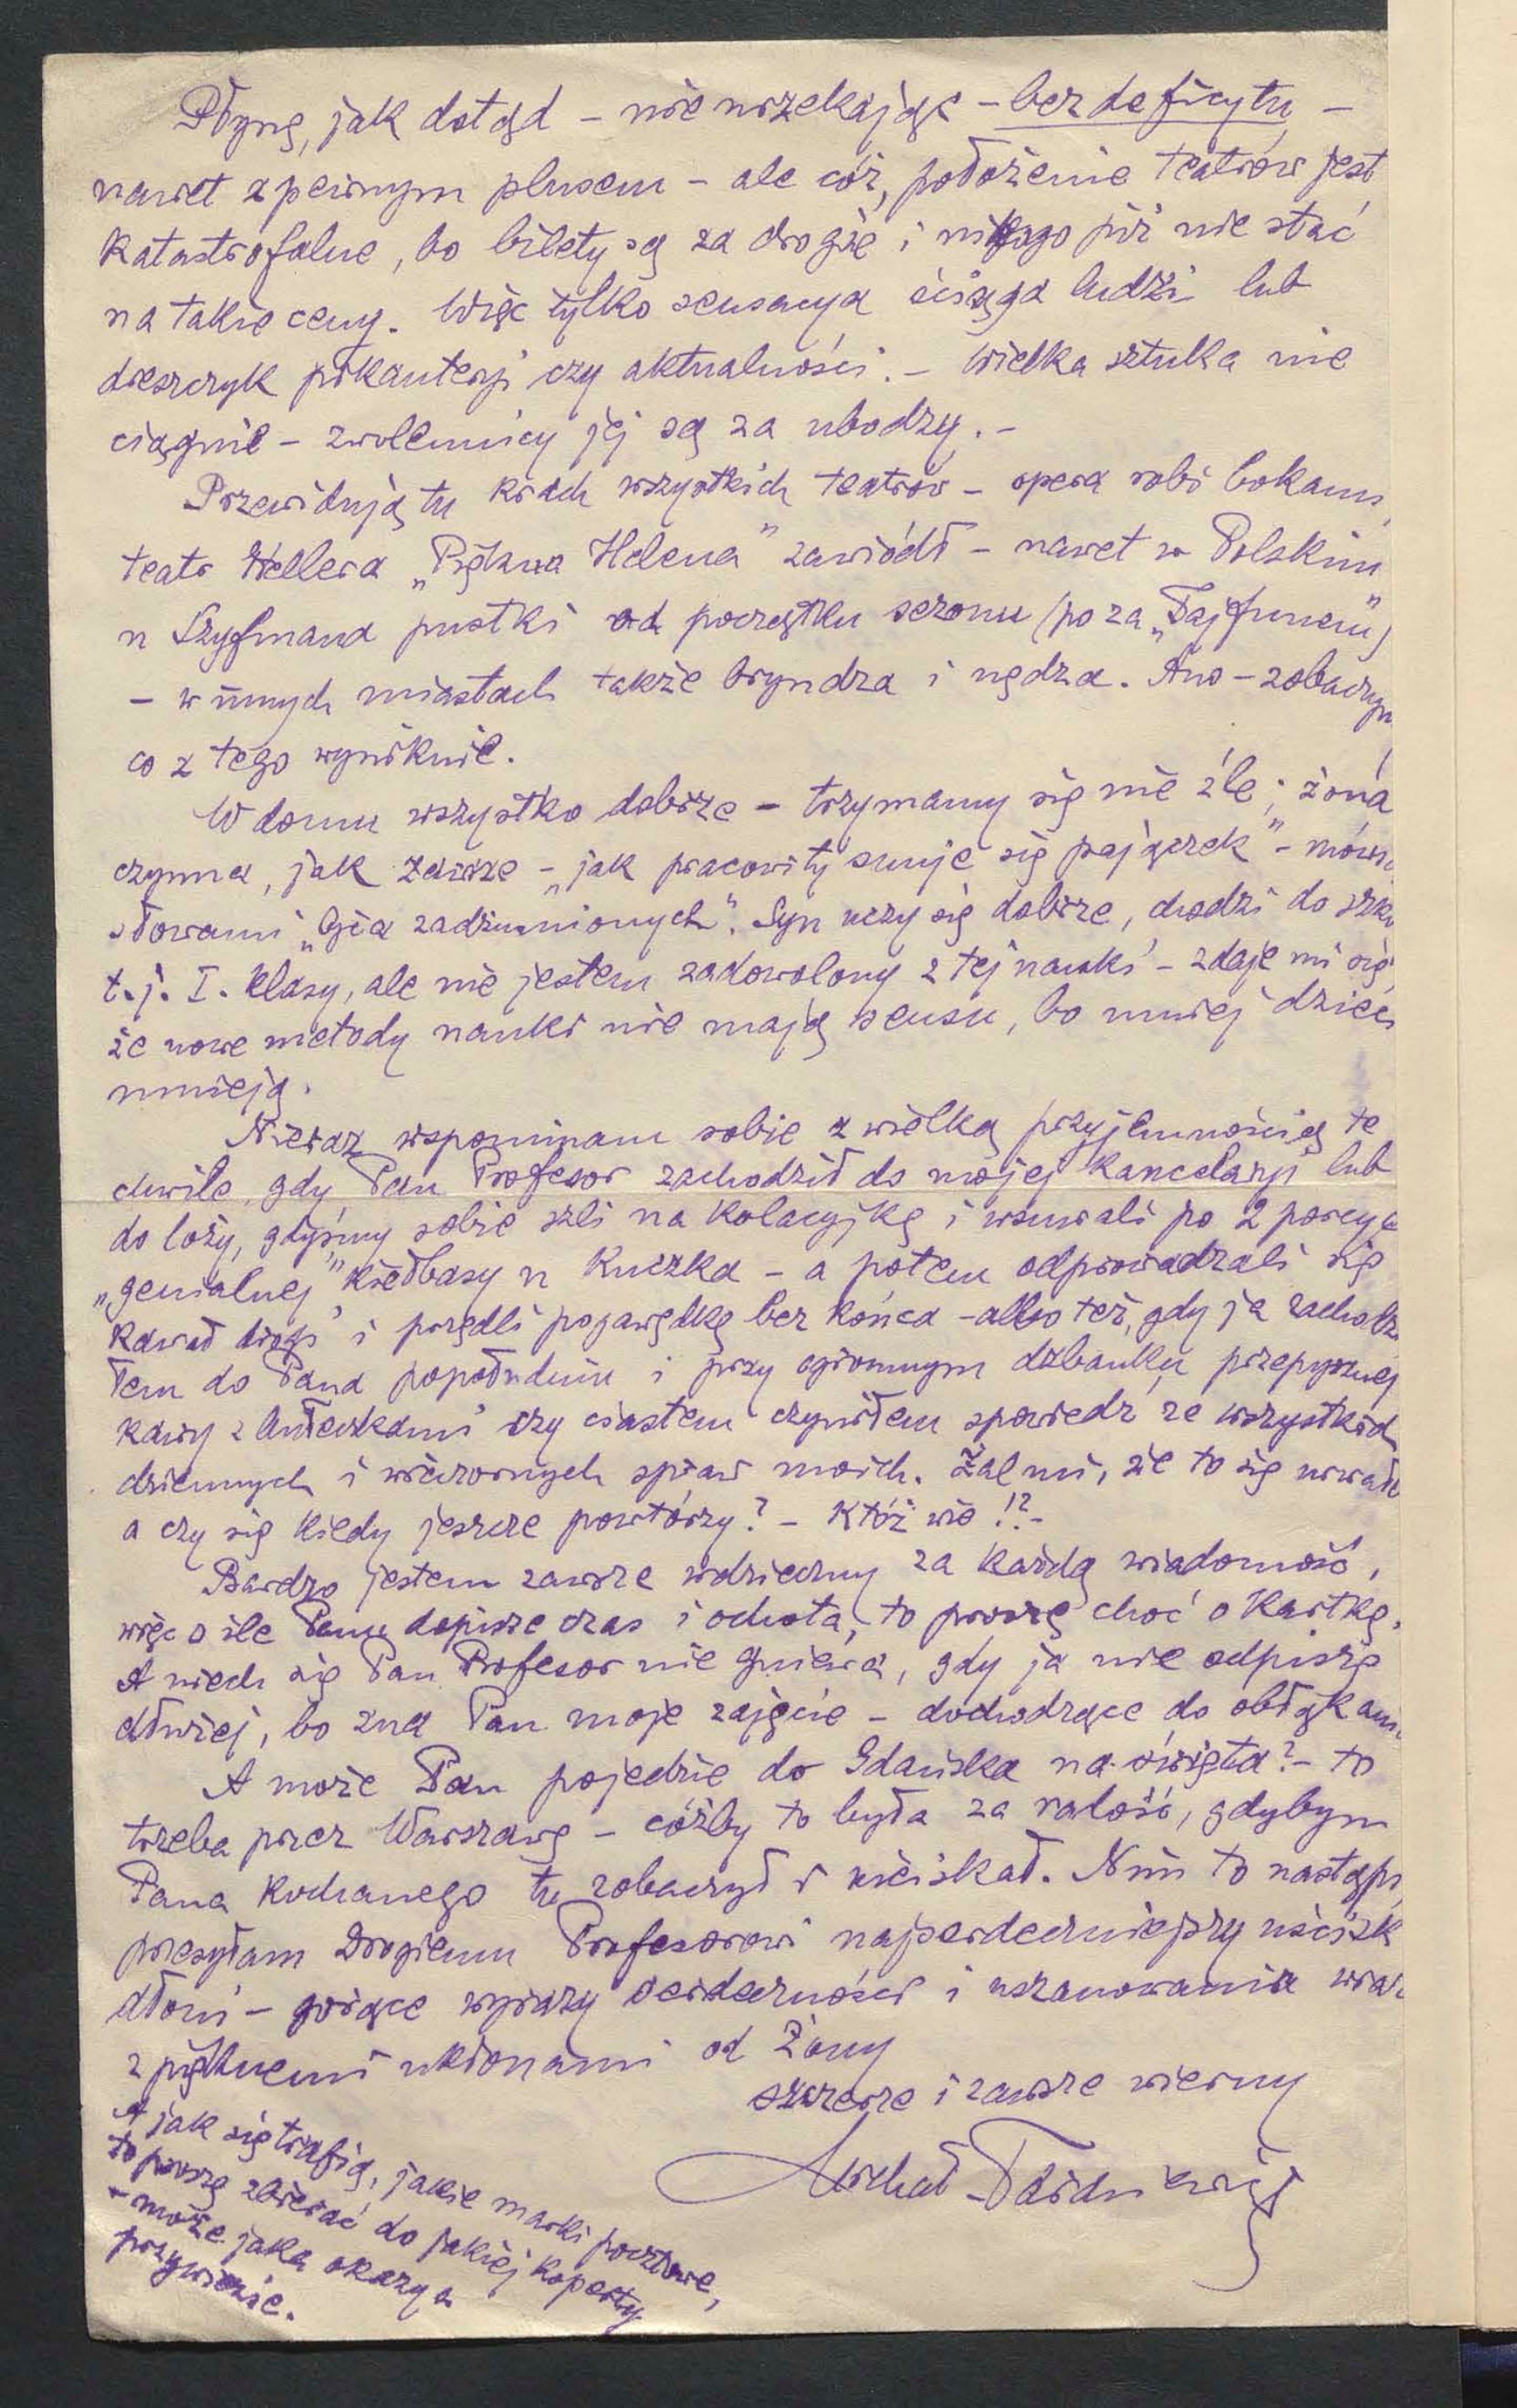 Płynę, jak dotąd – nie narzekając – bez deficytu –
nawet z pewnym plusem – ale cóż, położenie teatrów jest
katastrofalne, bo bilety są za drogie i nikogo już nie stać
na takie ceny. Więc tylko sensacya ściąga ludzi lub
dreszczyk pikanterji czy aktualności. – Wielka sztuka nie
ciągnie – zwolennicy jej są za ubodzy. –
Przewidują tu krach wszystkich teatrów – opera robi bokami,
teatr Hellera „Piękna Helena" zawiódł – nawet w Polskim
u Szyfmana pustki od początku sezonu (poza „Tajfunem")
– w innych miastach także bryndza i nędza. Ano – zobaczym
co z tego wyniknie.
W domu wszystko dobrze – trzymamy się nie źle; żona
czynna, jak zawsze – „jak pracowity snuje się pajączek" – mówi
słowami „Ojca zadżumionych". Syn uczy się dobrze, chodzi do szko
t. j. I. klasy, ale nie jestem zadowolony z tej nauki – zdaje mi się,
że nowe metody nauki nie mają sensu, bo mniej dzieci
umieją.
Nieraz wspominam sobie z wielką przyjemnością te
chwile, gdy Pan Profesor zachodził do mojej kancelarji lub
do loży, gdyśmy sobie szli na kolacyjkę i wsuwali po 2 porcye
„genialnej" kiełbasy u Kuczka – a potem odprowadzali się
kawał drogi i przędli pogawędkę bez końca – albo też, gdy ja zachodzi
łem do Pana popołudniu i przy ogromnym dzbanku przepysznej
kawy z bułeczkami czy ciastem czyniłem spowiedź ze wszystkich
dziennych i wieczornych spraw moich. Żal mi, że to się urwało
a czy się kiedy jeszcze powtórzy? – Któż wie!? –
Bardzo jestem zawsze wdzięczny za każdą wiadomość,
więc o ile Panu dopisze czas i ochota, to proszę choć o kartkę.
A niech się Pan Profesor nie gniewa, gdy ja nie odpiszę
dłużej, bo zna Pan moje zajęcie – dochodzące do obłąkani
A może Pan pojedzie do Gdańska na święta? – to
trzeba przez Warszawę – cóżby to była za radość, gdybym
Pana kochanego tu zobaczył i uściskał. Nim to nastąpi,
przesyłam Drogiemu Profesorowi najserdeczniejszy uścisk
dłoni – gorące wyrazy serdeczności i uszanowania wraz
z pięknemi ukłonami od Żony
szczerze i zawsze wierny
Michał Tarasiewicz
A jak się trafią, jakie marki pocztowe,
to proszę zbierać do jakiej koperty
– może jaka okazya
przywiezie.